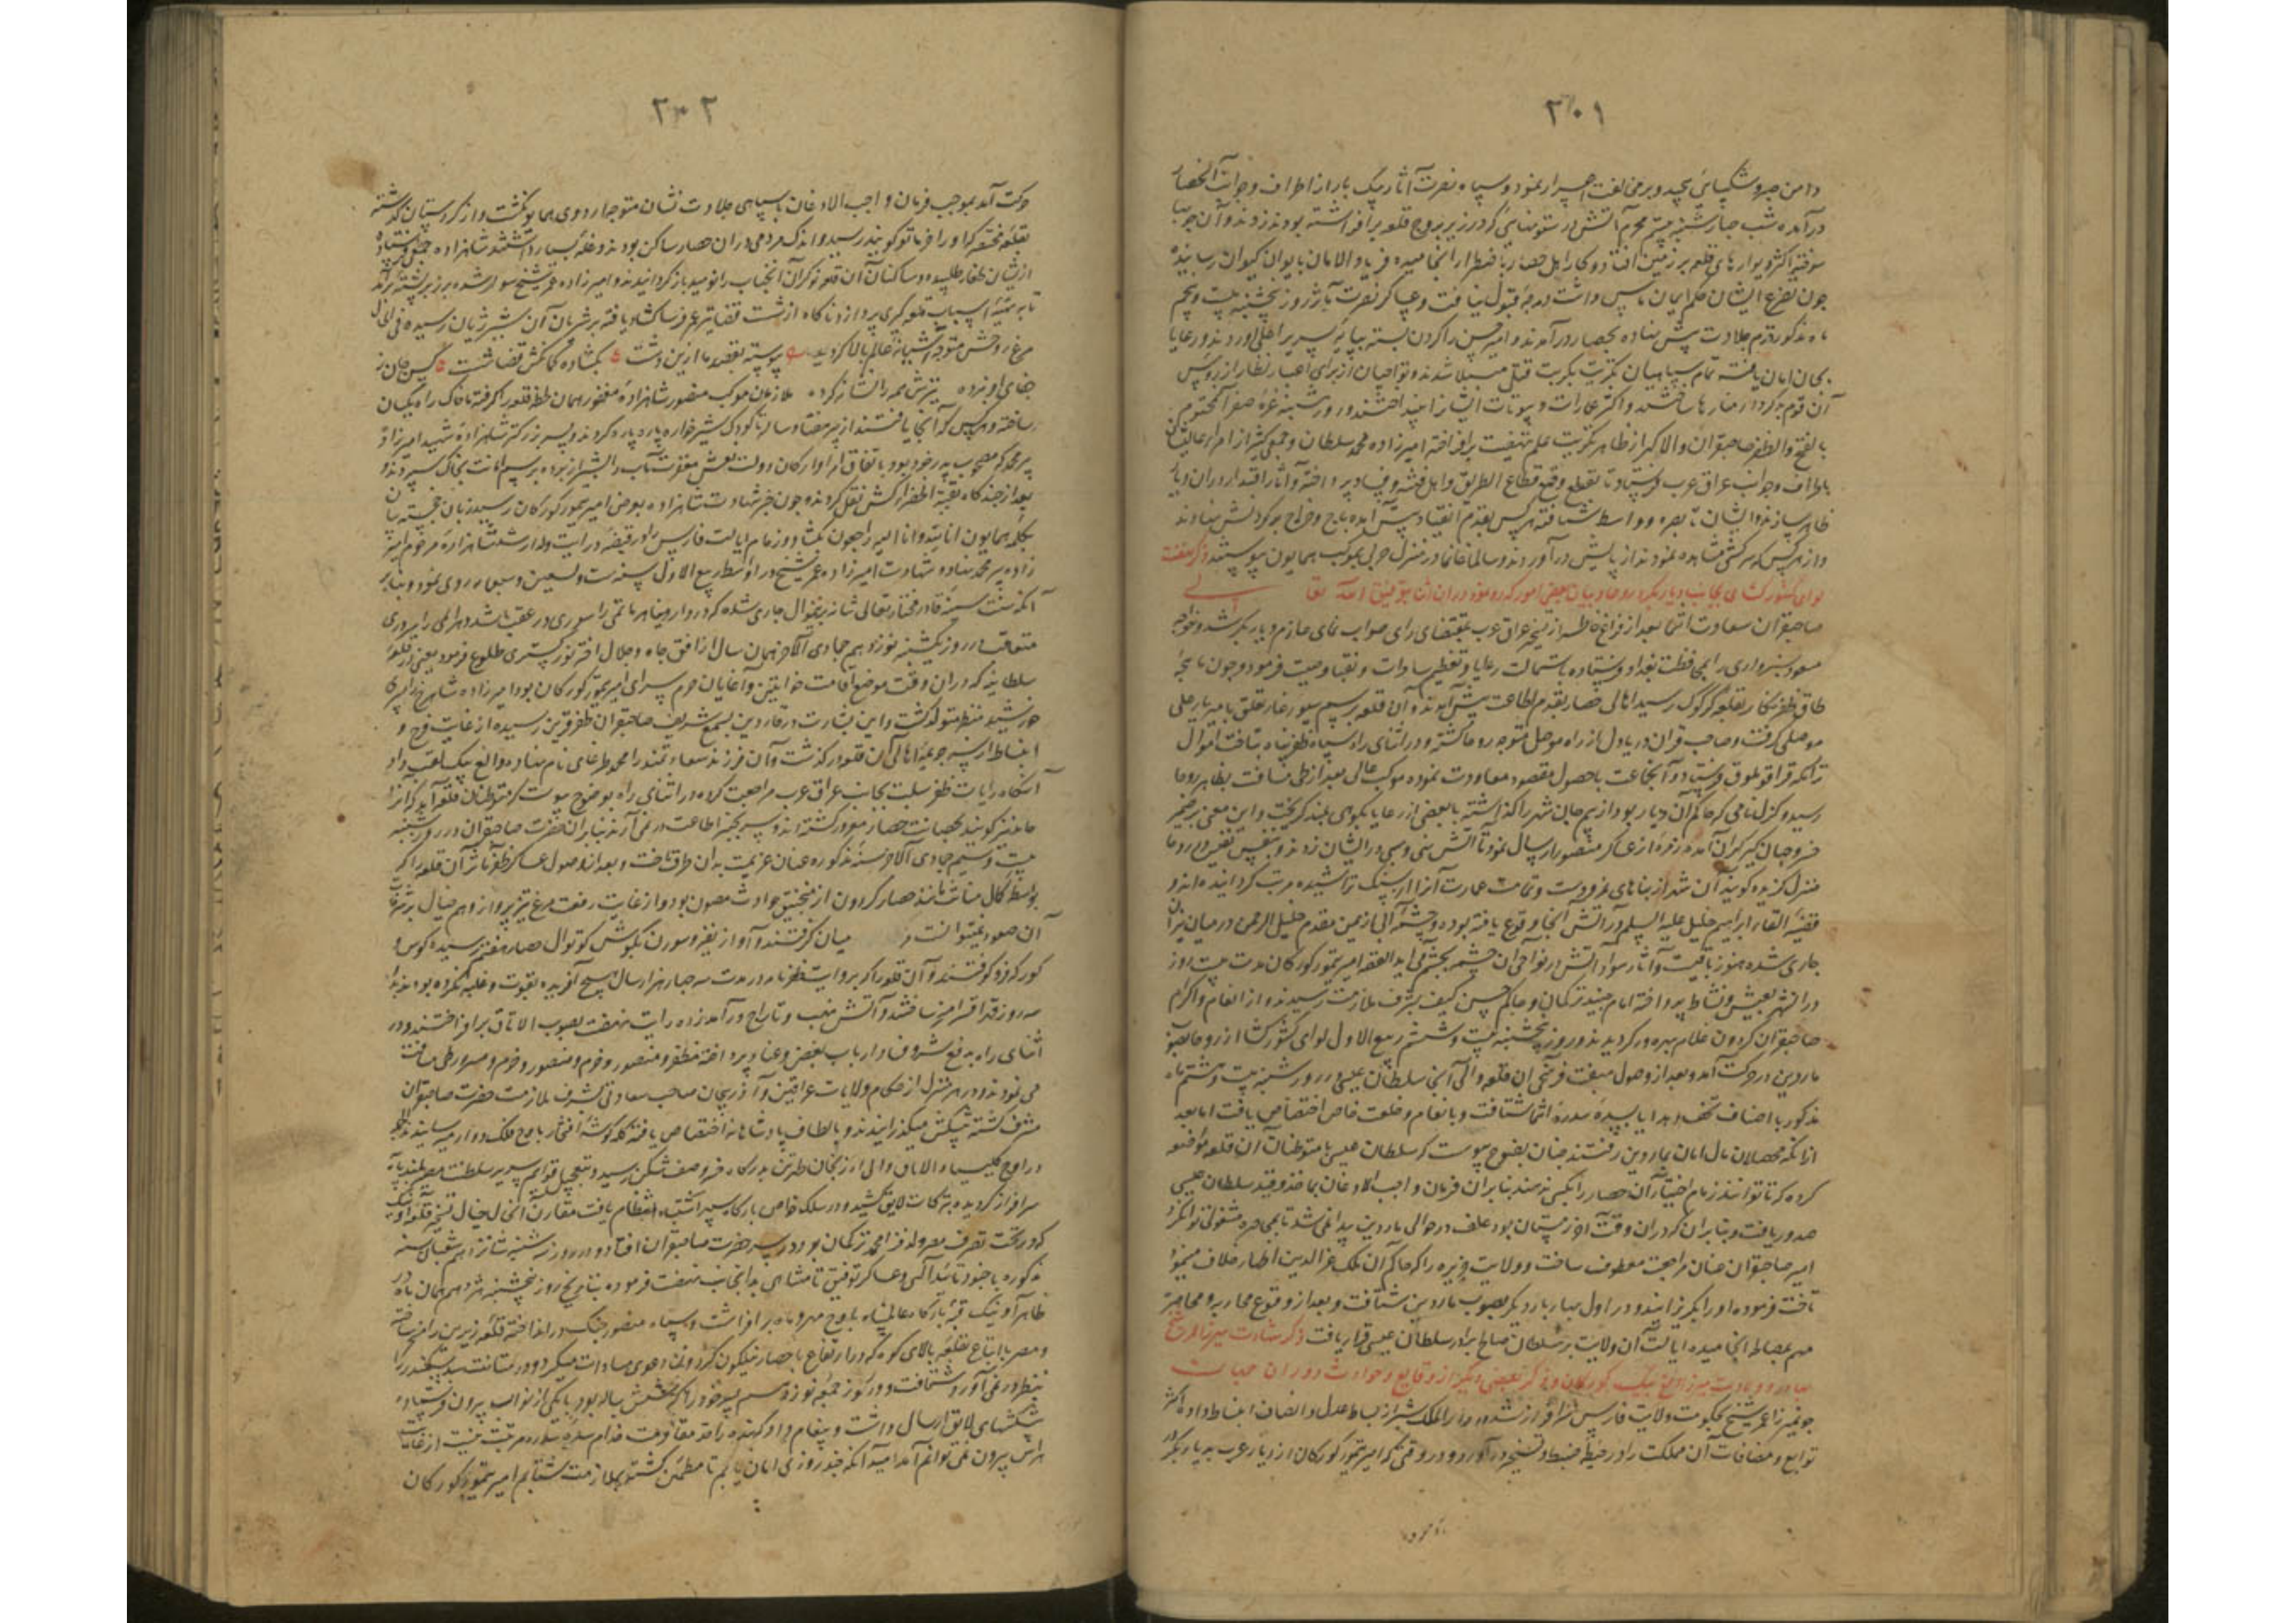 ۲۰۱
دامن صبر و شکیبائی بچید و بر مخالفت اصرار نمود و سپاه نصرت آثار بیک بار از اطراف و جوانب آن حصار
درآمده شب چهارشنبه بیستم محرم آتش در ستونهائی که در زیر بروج قلعه برافراشته بودند زدند و آن چوبها
سوخته اکثر دیوارهای قلعه بر زمین افتاد و کار اهل حصار باضطرار انجامیده فریاد الامان بایوان کیوان رسانیدند
چون تضرع ایشان حکم ایمان یأس داشت درجه قبول نیافت و عساکر نصرت مآثر روز پنجشنبه بیست و پنجم
ماه مذکور قدم جلادت پیش نهاده بحصار درآمدند و امیر حسن را گردن بسته بپایه سریر اعلی آوردند و رعایا
بجان امان یافته تمام سپاهیان تکریت بکربت قتل مبتلا شدند و نواحیان از برای اعتبار نظار از رؤس
آن قوم بدکردار منارها ساختند و اکثر عمارات و بیوتات ایشان را بینداختند و روز شنبه غره صفر المختوم
بالفتح و الظفر صاحبقران والاگهر از ظاهر تکریت علم نهضت برافراخته امیرزاده محمد سلطان و جمعی کثیر از امراء عالیشان
باطراف و جوانب عراق عرب فرستاد تا بقلع و قمع قطاع الطریق و اهل فتنه و فساد پرداخته و آثار اقتدار در آن دیار
ظاهر سازند و ایشان تا بصره و واسط شتافته هر کس بقدم انقیاد پیش آمده باج و خراج بر گردنش نهادند
و از هر کس که سرکشی مشاهده نمودند از پایش درآوردند و سالما غانما در منزل حربی بموکب همایون پیوستند ذکر نهضت
لوای کشورکشای بجانب دیاربکر و روحا و بیان بعضی امور که رو نمود در آن زمان بتوفیق الله تعالی
صاحبقران سعادت انتما بعد از فراغ خاطر از تسخیر عراق عرب بمقتضای رای صواب نمای عازم دیاربکر شد و خواجه
مسعود سبزواری را بمحافظت بغداد فرستاده باستمالت رعایا و تعظیم سادات و نقبا وصیت فرمود و چون ماهچه
طاق ظفرنگار بقلعه کرکوک رسید اهالی حصار بقدم اطاعت پیش آمدند و آن قلعه برسم سیورغال تعلق بامیر یار علی
موصلی گرفت و صاحب قران دریادل از راه موصل متوجه روحا گشته و در اثنای راه سپاه ظفرپناه بتاخت اموال
ترکمان قراقویونلوق فرستاد و آن جماعت با حصول مقصود معاودت نموده موکب عالی بعد از طی مسافت بظاهر روحا
رسید و کزل نامی که حاکم آن دیار بود از بیم جان شهر را گذاشته با بعضی از رعایا بکوهی بلند گریخت و این معنی بر ضمیر
خسرو جهانگیر گران آمده زمره از عساکر منصور ارسال نمود تا آتش نهب و سبی در ایشان زدند و بنفس نفیس در روحا
منزل گزیده گویند آن شهر از بناهای نمرودست و تمامت عمارت آن را از سنگ تراشیده مرتب گردانیده‌اند و
قضیه القاء ابراهیم خلیل علیه السلم در آتش آنجا وقوع یافته بوده و چشمه آبی از یمن مقدم خلیل الرحمن در میان نیران
جاری شده هنوز باقیست و آثار سواد آتش در نواحی آن چشمه بچشم می‌آید القصه امیر تیمور گورکان مدت بیست روز
در آن شهر بعیش و نشاط پرداخته امام جنید ترکمان و حاکم حسن کیف بشرف ملازمت رسیدند و از انعام و اکرام
صاحبقران گردون غلام بهره‌ور گردیدند و روز پنجشنبه بیست و ششم ربیع الاول لوای کشورکشا از روحا بصوب
ماردین در حرکت آمد و بعد از وصول بهفت فرسخی آن قلعه والی آنجا سلطان عیسی در روز شنبه بیست و هشتم ماه
مذکور با اصناف تحف و هدایا بسده سدره انتما شتافت و بانعام و خلعت خاص اختصاص یافت اما بعد
از آنکه محصلان مال امان بماردین رفتند چنان بوضوح پیوست که سلطان عیسی با متوطنان آن قلعه مواضعه
کرده که تا توانند زمام اختیار آن حصار را بکسی ندهند بنابر آن فرمان واجب الاذعان بماخذ و قید سلطان عیسی
صدور یافت و بنابر آن که در آن وقت آخر زمستان بود علف در حوالی ماردین پیدا نمی‌شد تا بمحاصره مشغولی توان کرد
امیر صاحبقران عنان مراجعت معطوف ساخت و ولایت جزیره را که حاکم آن ملک عزالدین اظهار خلاف مینمود
تاخت فرموده او را بگریزانید و در اول بهار بار دیگر بصوب ماردین شتافت و بعد از وقوع محاربه و محاصره
مهم بمصالحه انجامیده ایالت آن ولایت بر سلطان صالح برادر سلطان عیسی قرار یافت ذکر شهادت میرزا عمر شیخ
بهادر و ولادت میرزا الغ بیک گورکان و ذکر بعضی دیگر از وقایع و حوادث دوران
چون میرزا عمر شیخ بحکومت ولایت فارس سرافراز شده در دارالملک شیراز بساط عدل و انصاف انبساط داده اکثر
توابع و مضافات آن مملکت را در حیطه ضبط و تسخیر درآورد و در وقتی که امیر تیمور گورکان از دیار عرب به دیاربکر در
۲۰۲
حرکت آمد بموجب فرمان واجب الاذعان با سپاهی جلادت نشان متوجه اردوی همایون گشت و از کردستان گذشته
بقلعه مختصر که او را خرماتو گویند رسید و اندک مردمی در آن حصار ساکن بودند و غله بسیار داشتند شاهزاده جمعی فرستاده
از ایشان طغار طلبید و ساکنان آن قلعه نوکران آنجناب را نومید بازگردانیدند و امیرزاده عمر شیخ سوار شده بر زبر پشته برآمد
تا به تهیه اسباب قلعه‌گیری پردازد ناگاه از شست قضا تیر عمرفرسا گشاد یافته بر شریان آن شیر ژیان رسیده فی الحال
مرغ روحش متوجه آشیانه عالم بالا گردید پیوسته بقصد ما ازین دشت بگشاده کمانکش قضا شست کس جان ز
جفای او نبرده تیرش همه را نشانه کرده ملازمان موکب منصور شاهزاده مغفور همان لحظه قلعه را گرفته با خاک راه یکسان
ساختند و هر کس که آنجا یافتند از پیر هفتاد ساله تا کودک شیرخواره پاره پاره کردند و پسر بزرگتر شاهزاده شهید امیرزاده
پیر محمد که مصحوب پدر خود بود باتفاق امرا و ارکان دولت نعش مغفرت مآب را بشیراز برده برسم امانت بخاک سپردند و
بعد از چندگاه بقبة الخضراء کش نقل کردند و چون خبر شهادت شاهزاده بعرض امیر تیمور گورکان رسید زبان خجسته بیان
بکلمه همایون انا لله و انا الیه راجعون بگشاد و زمام ایالت فارس را در قبضه درایت ولد ارشد شاهزاده مرحوم امیر
زاده پیر محمد نهاد و شهادت امیرزاده عمر شیخ در اواسط ربیع الاول سنه ست و تسعین و سبعمایه روی نمود و بنابر
آنکه سنت سنیه قادر مختار تعالی شانه برین منوال جاری شده که در دار دنیا هر ماتمی را سوری در عقب باشد و هر المی را سروری
متعاقب در روز یکشنبه نوزدهم جمادی الآخر همان سال از افق جاه و جلال اختر نورگستری طلوع فرمود یعنی در قلعه
سلطانیه که در آن وقت موضع اقامت خواتین و آغایان حرم سرای امیر تیمور گورکان بود امیرزاده شاهرخ را پسری
خورشید منظر متولد گشت و این بشارت در ماردین بسمع شریف صاحبقران ظفرقرین رسیده از غایت فرح و
انبساط از سر جریمه اهالی آن قلعه درگذشت و آن فرزند سعادتمند را محمد طرغای نام نهاده و الغ بیک لقب داد
آنگاه رایات ظفر سلب بجانب عراق عرب مراجعت کرده در اثنای راه بوضوح پیوست که متوطنان قلعه آمد که آن را
حامد نیز گویند بحصانت حصار مغرور گشته‌اند و سر بچنبر اطاعت در نمی‌آرند بنابر آن حضرت صاحبقران در روز شنبه
بیست و سیم جمادی الآخر سنه مذکوره عنان عزیمت به آن طرف تافت و بعد از وصول عساکر ظفر مآثر آن قلعه را که
بواسطه کمال متانت مانند حصار گردون از منجنیق حوادث مصون بود و از غایت رفعت مرغ تیزپرواز وهم خیال بر شرفات
آن صعود نمیتوانست در میان گرفتند و آواز نفیر و سورن بگوش کوتوال حصار هفتم رسیده کوس و
گورکه فرو کوفتند و آن قلعه را که بروایت ظفرنامه در مدت سه چهار هزار سال هیچ آفریده بقوت و غلبه نگرفته بود بعد از
سه روز قهرا قسرا مسخر ساختند و آتش نهب و تاراج در آمد زده رایت نهضت بصوب الاتاق برافراختند و در
اثنای راه بدفع شر و فساد ارباب بغض و عناد پرداخته مظفر و منصور و خرم و مسرور طی مسافت
می‌نمودند و در هر منزل از حکام ولایات عراقین و آذربیجان صاحب سعادتی بشرف ملازمت حضرت صاحبقران
مشرف گشته پیشکش میگذرانیدند و بالطاف پادشاهانه اختصاص یافته کله گوشه افتخار باوج فلک دوار میرسانیدند
در اوچ کلیسیاء الاتاق والی ارزنجان طهرتن بدرگاه خسرو صف‌شکن رسید و بتقبیل قوایم سریر سلطنت مصیر بلندپایه
سرافراز گردیده تبرکات لایق کشید و در سلک خواص بارگاه سپهر اشتباه انتظام یافت مقارن آن حال خیال تسخیر قلعه اونیک
که در تحت تصرف مصر ولد قرا محمد ترکمان بود در سر حضرت صاحبقران افتاد و در روز سه‌شنبه شانزدهم شعبان سنه
مذکوره با جنود تایید الهی و عساکر توفیق نامتناهی بدانجانب نهضت فرموده بتاریخ روز پنجشنبه هژدهم همان ماه در
ظاهر اونیک قبه بارگاه عالم‌پناه باوج مهر و ماه برافراشت و سپاه منصور جنگ در انداخته قلعه زیرین را مسخر ساخته
و مصر با اتباع بقلعه بالای کوه که در ارتفاع با حصار نیلگون گردون دعوی مساوات میکرد و در متانت سد سکندر را
بنظر در نمی‌آورد شتافت و در روز جمعه نوزدهم پسر خود را که شش ساله بود با یکی از نواب بیرون فرستاده
پیشکشهای لایق ارسال داشت و پیغام داد که بنده را حد مقاومت خدام سده سدره مرتبت نیست از غایت
هراس بیرون نمی‌توانم آمد امید آنکه چند روزی امان یابم تا مطمئن گشته بملازمت شتابم امیر تیمور گورکان